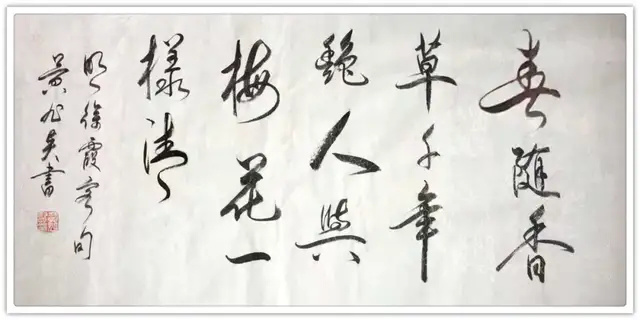 春随香
草千年
艳人与
梅花一
様清
明徐霞客句
黄
书